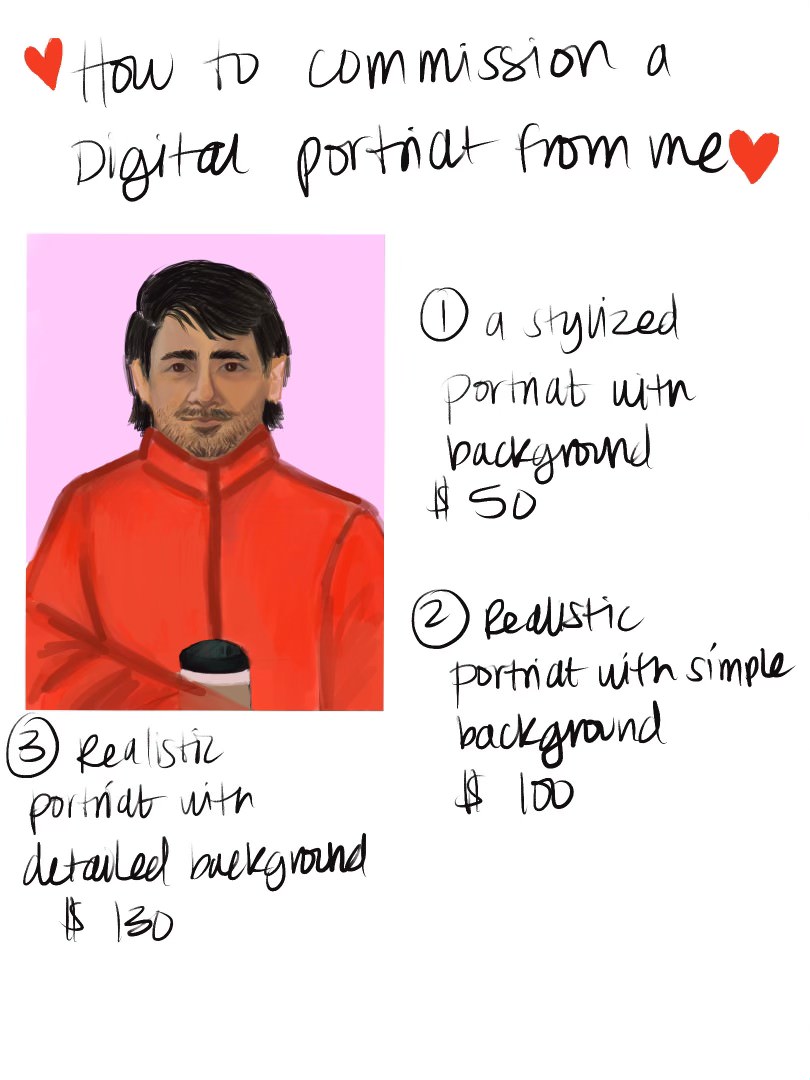 How to commission a
Digital portriat from me
1 a stylized
portriat with
background
$ 50
2 Realistic
portriat with simple
background
$ 100
3 Realistic
portriat with
detailed background
$ 130